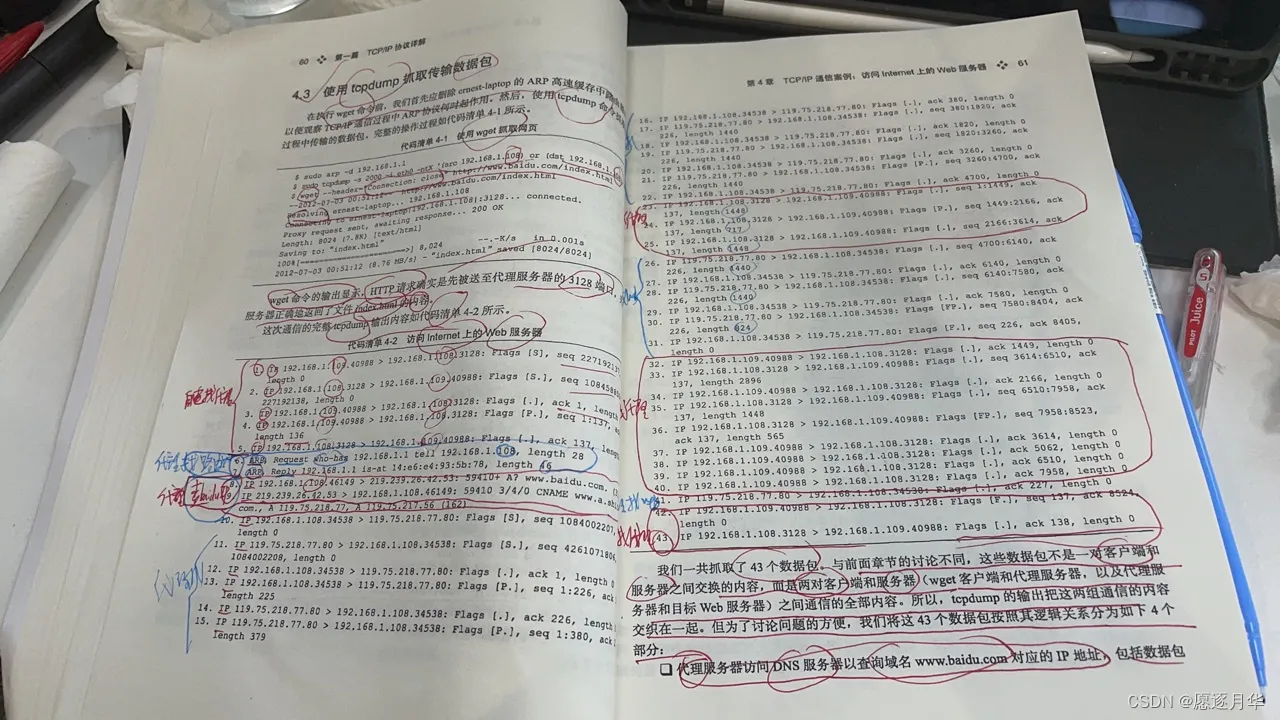 60 第一篇 TCP/IP 协议详解
4.3 使用 tcpdump 抓取传输数据包
在执行 wget 命令前，我们首先应删除 ernest-laptop 的 ARP 高速缓存中
以便观察 TCP/IP 通信过程中 ARP 协议何时起作用。然后，使用 tcpdump 命令
过程中传输的数据包。完整的操作过程如代码清单 4-1 所示。
代码清单 4-1 使用 wget 抓取网页
$ sudo arp -d 192.168.1.1
$ sudo tcpdump -s 2000 -i eth0 -ntX '(src 192.168.1.108) or (dst 192.168.1.
$ wget --header="Connection: close" http://www.baidu.com/index.html
--2012-07-03 00:51:12-- http://www.baidu.com/index.html
Resolving ernest-laptop... 192.168.1.108
Connecting to ernest-laptop|192.168.1.108|:3128... connected.
Proxy request sent, awaiting response... 200 OK
Length: 8024 (7.8K) [text/html]
Saving to: "index.html"
100%[====================>] 8,024 --.-K/s in 0.001s
2012-07-03 00:51:12 (8.76 MB/s) - "index.html" saved [8024/8024]
wget 命令的输出显示，HTTP 请求确实是先被送至代理服务器的 3128 端口，
服务器正确地返回了文件 index.html 的内容。
这次通信的完整 tcpdump 输出内容如代码清单 4-2 所示。
代码清单 4-2 访问 Internet 上的 Web 服务器
1. IP 192.168.1.109.40988 > 192.168.1.108.3128: Flags [S], seq 227192137,
length 0
2. IP 192.168.1.108.3128 > 192.168.1.109.40988: Flags [S.], seq 1084588
227192138, length 0
3. IP 192.168.1.109.40988 > 192.168.1.108.3128: Flags [.], ack 1, length
4. IP 192.168.1.109.40988 > 192.168.1.108.3128: Flags [P.], seq 1:137,
length 136
5. IP 192.168.1.108.3128 > 192.168.1.109.40988: Flags [.], ack 137, length
6. ARP, Request who-has 192.168.1.1 tell 192.168.1.108, length 28
7. ARP, Reply 192.168.1.1 is-at 14:e6:e4:93:5b:78, length 46
8. IP 192.168.1.108.46149 > 219.239.26.42.53: 59410+ A? www.baidu.com.
9. IP 219.239.26.42.53 > 192.168.1.108.46149: 59410 3/4/0 CNAME www.a.sh
com., A 119.75.218.77, A 119.75.217.56 (162)
10. IP 192.168.1.108.34538 > 119.75.218.77.80: Flags [S], seq 1084002207,
length 0
11. IP 119.75.218.77.80 > 192.168.1.108.34538: Flags [S.], seq 4261071806
1084002208, length 0
12. IP 192.168.1.108.34538 > 119.75.218.77.80: Flags [.], ack 1, length 0
13. IP 192.168.1.108.34538 > 119.75.218.77.80: Flags [P.], seq 1:226,
length 225
14. IP 119.75.218.77.80 > 192.168.1.108.34538: Flags [.], ack 226, length
15. IP 119.75.218.77.80 > 192.168.1.108.34538: Flags [P.], seq 1:380, ack
length 379
首先找代理
第 4 章 TCP/IP 通信案例：访问 Internet 上的 Web 服务器 61
16. IP 192.168.1.108.34538 > 119.75.218.77.80: Flags [.], ack 380, length 0
17. IP 119.75.218.77.80 > 192.168.1.108.34538: Flags [.], seq 380:1820, ack
226, length 1440
18. IP 192.168.1.108.34538 > 119.75.218.77.80: Flags [.], ack 1820, length 0
19. IP 119.75.218.77.80 > 192.168.1.108.34538: Flags [.], seq 1820:3260, ack
226, length 1440
20. IP 192.168.1.108.34538 > 119.75.218.77.80: Flags [.], ack 3260, length 0
21. IP 119.75.218.77.80 > 192.168.1.108.34538: Flags [P.], seq 3260:4700, ack
226, length 1440
22. IP 192.168.1.108.34538 > 119.75.218.77.80: Flags [.], ack 4700, length 0
23. IP 192.168.1.108.3128 > 192.168.1.109.40988: Flags [.], seq 1:1449, ack
137, length 1448
24. IP 192.168.1.108.3128 > 192.168.1.109.40988: Flags [P.], seq 1449:2166, ack
137, length 717
25. IP 192.168.1.108.3128 > 192.168.1.109.40988: Flags [.], seq 2166:3614, ack
137, length 1448
26. IP 119.75.218.77.80 > 192.168.1.108.34538: Flags [.], seq 4700:6140, ack
226, length 1440
27. IP 192.168.1.108.34538 > 119.75.218.77.80: Flags [.], ack 6140, length 0
28. IP 119.75.218.77.80 > 192.168.1.108.34538: Flags [.], seq 6140:7580, ack
226, length 1440
29. IP 192.168.1.108.34538 > 119.75.218.77.80: Flags [.], ack 7580, length 0
30. IP 119.75.218.77.80 > 192.168.1.108.34538: Flags [FP.], seq 7580:8404, ack
226, length 824
31. IP 192.168.1.108.34538 > 119.75.218.77.80: Flags [F.], seq 226, ack 8405,
length 0
32. IP 192.168.1.109.40988 > 192.168.1.108.3128: Flags [.], ack 1449, length 0
33. IP 192.168.1.108.3128 > 192.168.1.109.40988: Flags [.], seq 3614:6510, ack
137, length 2896
34. IP 192.168.1.109.40988 > 192.168.1.108.3128: Flags [.], ack 2166, length 0
35. IP 192.168.1.108.3128 > 192.168.1.109.40988: Flags [.], seq 6510:7958, ack
137, length 1448
36. IP 192.168.1.108.3128 > 192.168.1.109.40988: Flags [FP.], seq 7958:8523,
ack 137, length 565
37. IP 192.168.1.109.40988 > 192.168.1.108.3128: Flags [.], ack 3614, length 0
38. IP 192.168.1.109.40988 > 192.168.1.108.3128: Flags [.], ack 5062, length 0
39. IP 192.168.1.109.40988 > 192.168.1.108.3128: Flags [.], ack 6510, length 0
40. IP 192.168.1.109.40988 > 192.168.1.108.3128: Flags [.], ack 7958, length 0
41. IP 119.75.218.77.80 > 192.168.1.108.34538: Flags [.], ack 227, length 0
42. IP 192.168.1.109.40988 > 192.168.1.108.3128: Flags [F.], seq 137, ack 8524,
length 0
43. IP 192.168.1.108.3128 > 192.168.1.109.40988: Flags [.], ack 138, length 0
我们一共抓取了 43 个数据包。与前面章节的讨论不同，这些数据包不是一对客户端和
服务器之间交换的内容，而是两对客户端和服务器（wget 客户端和代理服务器，以及代理服
务器和目标 Web 服务器）之间通信的全部内容。所以，tcpdump 的输出把这两组通信的内容
交织在一起。但为了讨论问题的方便，我们将这 43 个数据包按照其逻辑关系分为如下 4 个
部分：
❑ 代理服务器访问 DNS 服务器以查询域名 www.baidu.com 对应的 IP 地址，包括数据包
Juice
PILOT
CSDN @愿逐月华